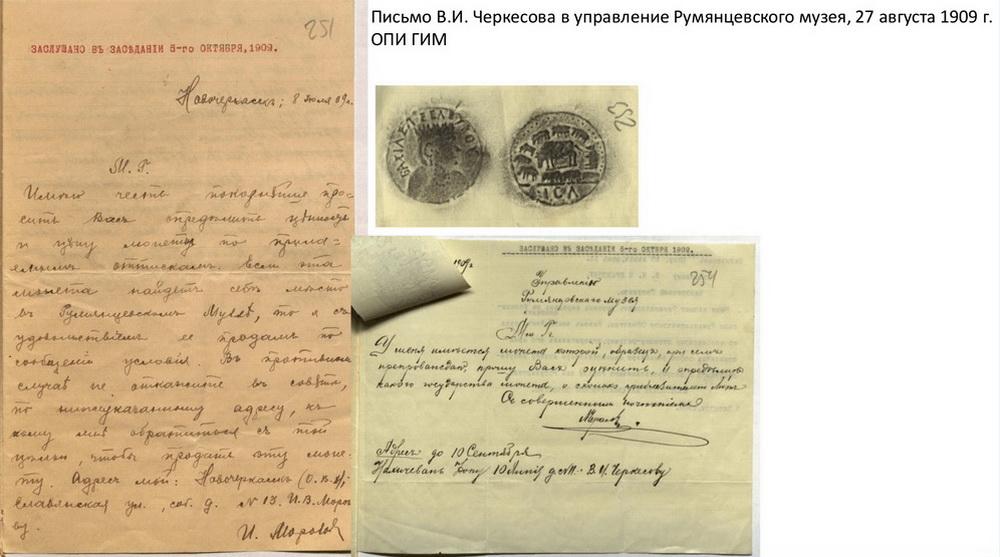 Письмо В.И. Черкесова в управление Румянцевского музея, 27 августа 1909 г.
ОПИ ГИМ
251
ЗАСЛУШАНО ВЪ ЗАСѢДАНІИ 5-го ОКТЯБРЯ, 1909.
Новочеркасск; 8 іюля 09 г.
М. Г.
Имѣю честь покорнѣйше про-
сить Васъ опредѣлить цѣнность
и цѣну монеты по прила-
гаемымъ оттискамъ. Если эта
монета найдетъ себѣ мѣсто
въ Румянцевскомъ Музеѣ, то я съ
удовольствіемъ ее продамъ по
сообщеніи условія. Въ противномъ
случаѣ не откажите въ совѣтѣ,
по нижеуказанному адресу, къ
кому мнѣ обратиться съ той
цѣлью, чтобы продать эту моне-
ту. Адресъ мой: Новочеркасскъ (О.В.Д.)
ул., соб. д. № 13. И.В. Моро-
ву.
И. Моровъ
252
ЗАСЛУШАНО ВЪ ЗАСѢДАНІИ 5-го ОКТЯБРЯ 1909.
1909 г.
254
Управленію
Румянцевскаго Музея
М. Г.
У меня имѣется монета которой образецъ при семъ
препровождаю, прошу Васъ оцѣнить, и опредѣлить
какого государства монета, и сколько приблизительно лѣтъ
Съ совершеннымъ почтеніемъ
Адресъ до 10 Сентября
Нахичевань Дону 10 Линія д. В.И. Черкесову